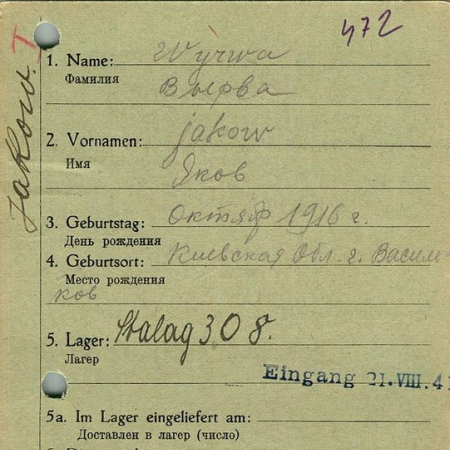 472
Jakow. T
1. Name: Wyrwa
Фамилия Вырва
2. Vornamen: Jakow
Имя Яков
3. Geburtstag: Октябр 1916 г.
День рождения
4. Geburtsort: Киевская Обл. г. Василь-
Место рождения
ков
5. Lager: Stalag 308.
Лагер
Eingang 21. VIII. 4
5a. Im Lager eingeliefert am:
Доставлен в лагер (число)